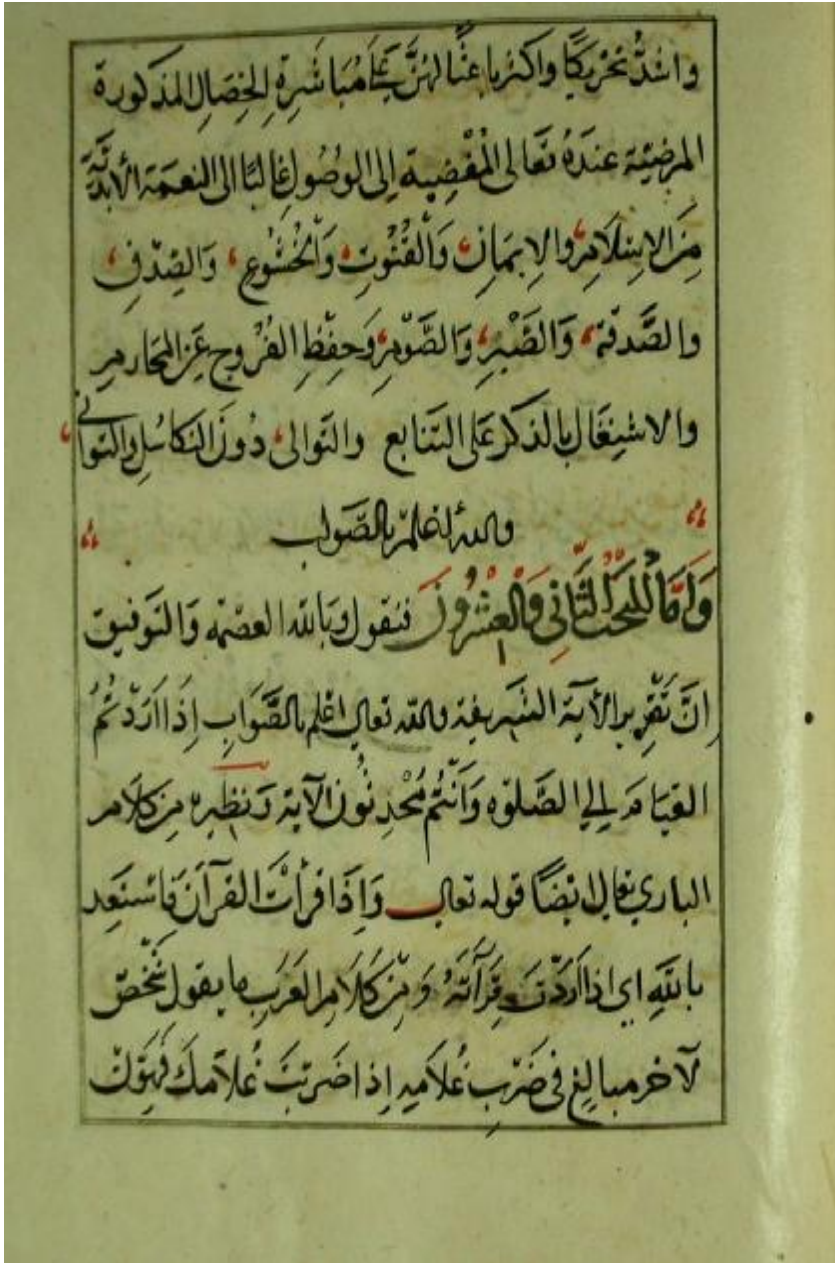 واشدُّ تحريكًا واكثر باعثًا لهنَّ عَلَى مُبَاشَرةِ الخِصَالِ المذكورة
المرضيّة عندَهُ تعَالى المُفْضِية إلى الوصُولِ غالبًا الى النعمة الأبديَّة
مِنَ الاسْلَامِ والإيمَانِ وَالْقُنُوتِ وَالخُشُوعِ وَالصِّدْقِ
والصَّدقة وَالصَّبْرِ وَالصَّوْمِ وَحِفْظِ الفُرُوجِ عَنِ المحَارمِ
والاشتِغَال بالذكر عَلى التتابع والتوالى دُونَ التكاسُل والتوانى
والله اعْلَمُ بالصَّواب
وَاَمَّا المبحَث الثَّانِي وَالعِشْرُونَ فنقول وَبَالله العصْمَة وَالتوفيق
اِنَّ تَقْرِير الأية الشَّريفة والله تعالى اعْلم بالصَّوَابِ إِذَا اَرَدْتُمُ
القيَامَ إلي الصَّلوٰه وَاَنْتُم مُحْدِثُون الآية وَنظيره مِن كلَام
الباري تعالى ايضًا قوله تعالى وَإِذَا قرأتَ القرآنَ فاستعِد
بالله اي اذا اَرَدْتَ قِرَآتَهُ وَمِن كَلَامِ العَرَبِ ما يقول شخصٌ
لآخر مبالغٍ في ضَرْبِ غُلَامِهِ اِذا ضَرَبْتَ غُلَامَكَ فَهَوِّنْ